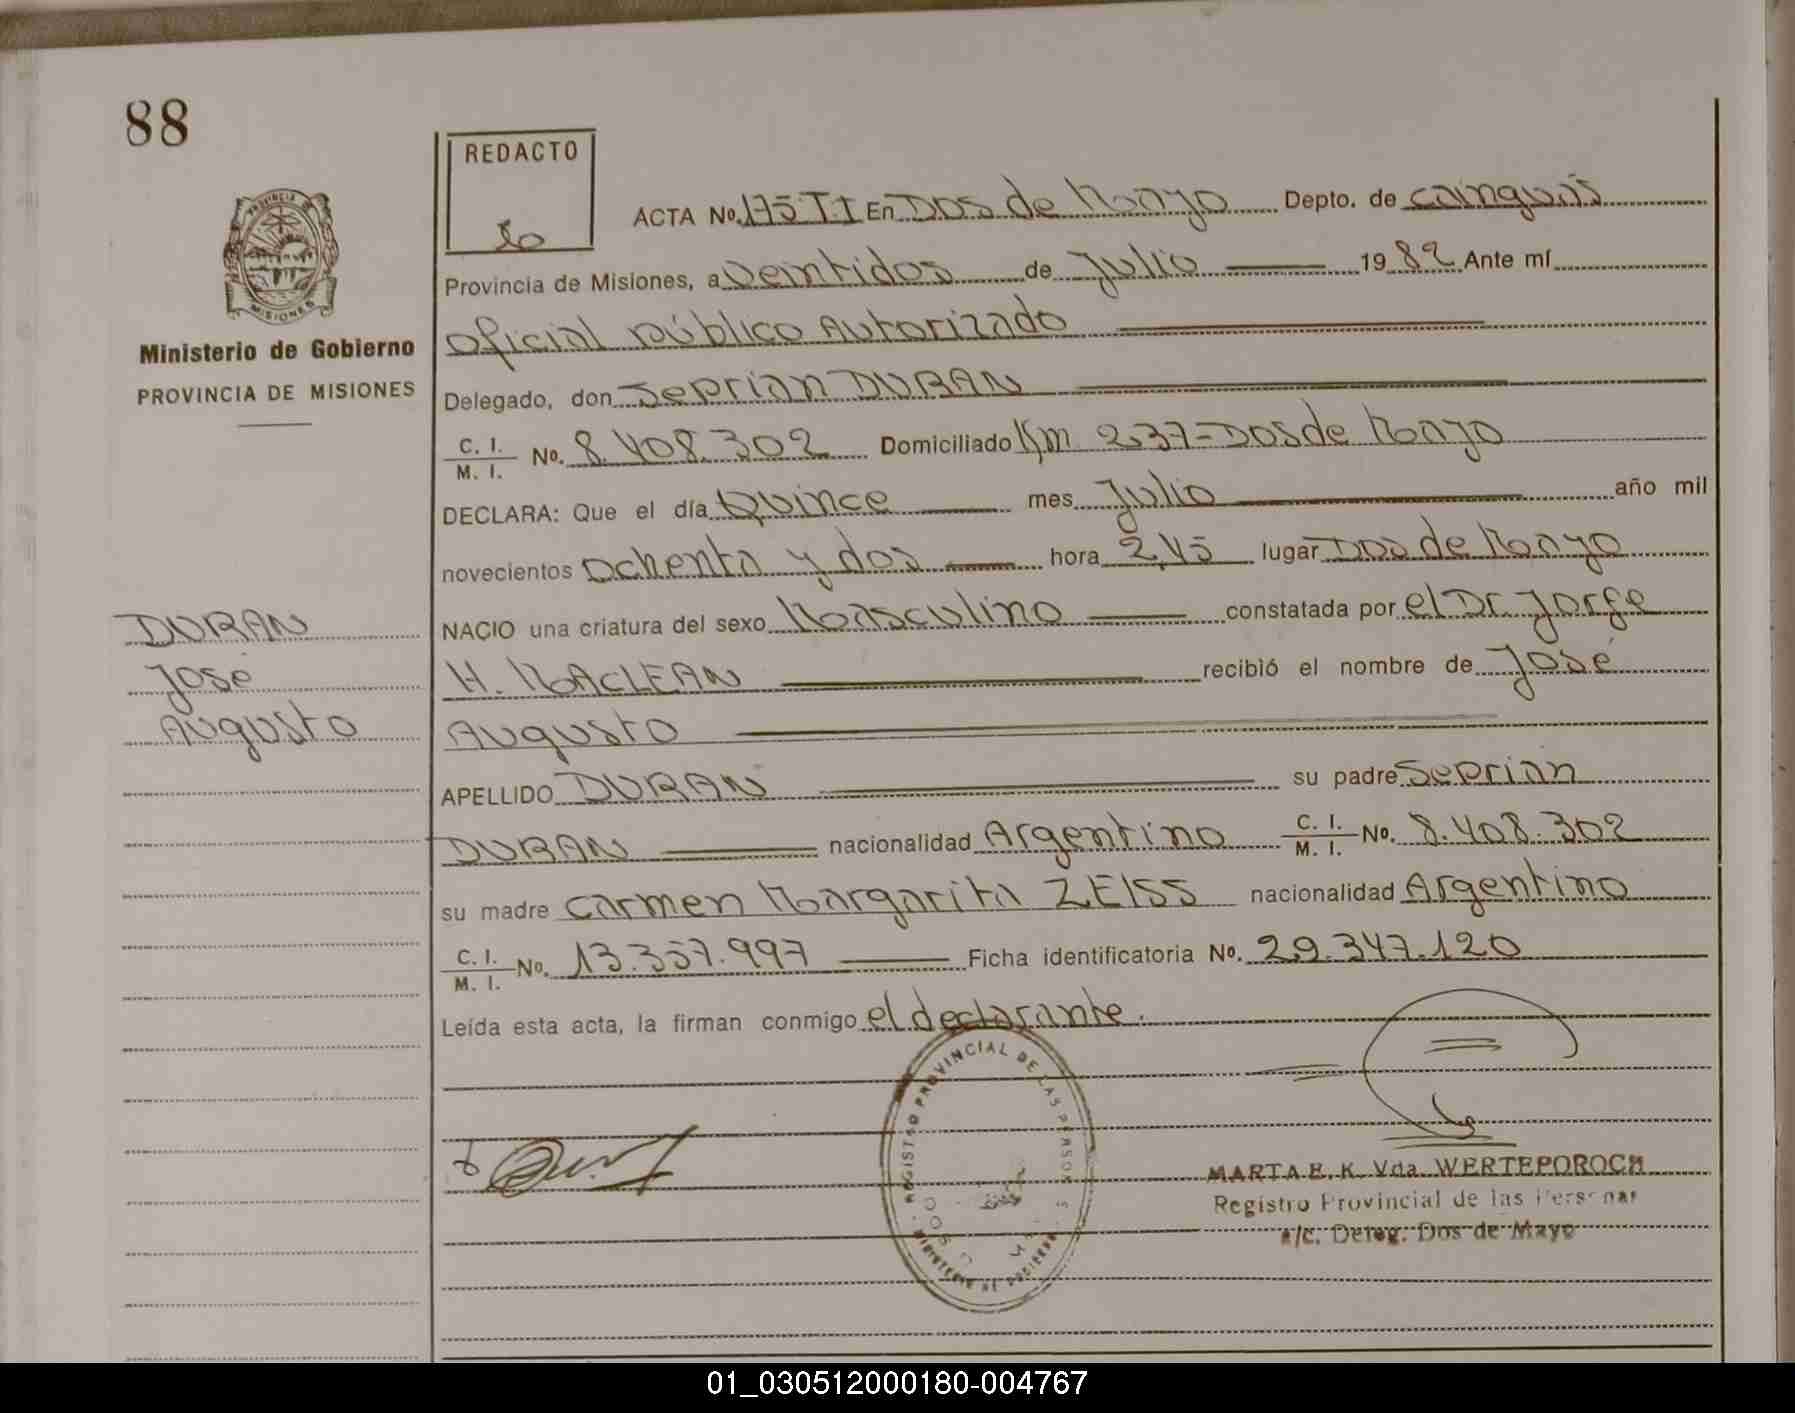 88
REDACTO
ACTA No. 175 T.I En Dos de Mayo Depto. de cainguás
Provincia de Misiones, a veintidos de Julio 19 82 Ante mí
oficial público Autorizado
Ministerio de Gobierno
PROVINCIA DE MISIONES
MISIONES
Delegado, don Seprian DURAN
C. I.
M. I. No. 8.408.302 Domiciliado Km 237-Dos de Mayo
DECLARA: Que el día Quince mes Julio año mil
novecientos Ochenta y dos hora 2,45 lugar Dos de Mayo
DURAN
NACIO una criatura del sexo Masculino constatada por el Dr. Jorge
José
H. MACLEAN recibió el nombre de José
Augusto
Augusto
APELLIDO DURAN su padre Seprian
DURAN nacionalidad Argentino C. I.
M. I. No. 8.408.302
su madre carmen Margarita ZEISS nacionalidad Argentino
C. I.
M. I. No. 13.357.997 Ficha identificatoria No. 29.347.120
Leída esta acta, la firman conmigo el declarante.
REGISTRO PROVINCIAL DE LAS PERSONAS
MINISTERIO DE GOBIERNO
MARTA E. K. Vda. WERTEPOROCH
Registro Provincial de las Personas
a/c. Deleg. Dos de Mayo
01_030512000180-004767